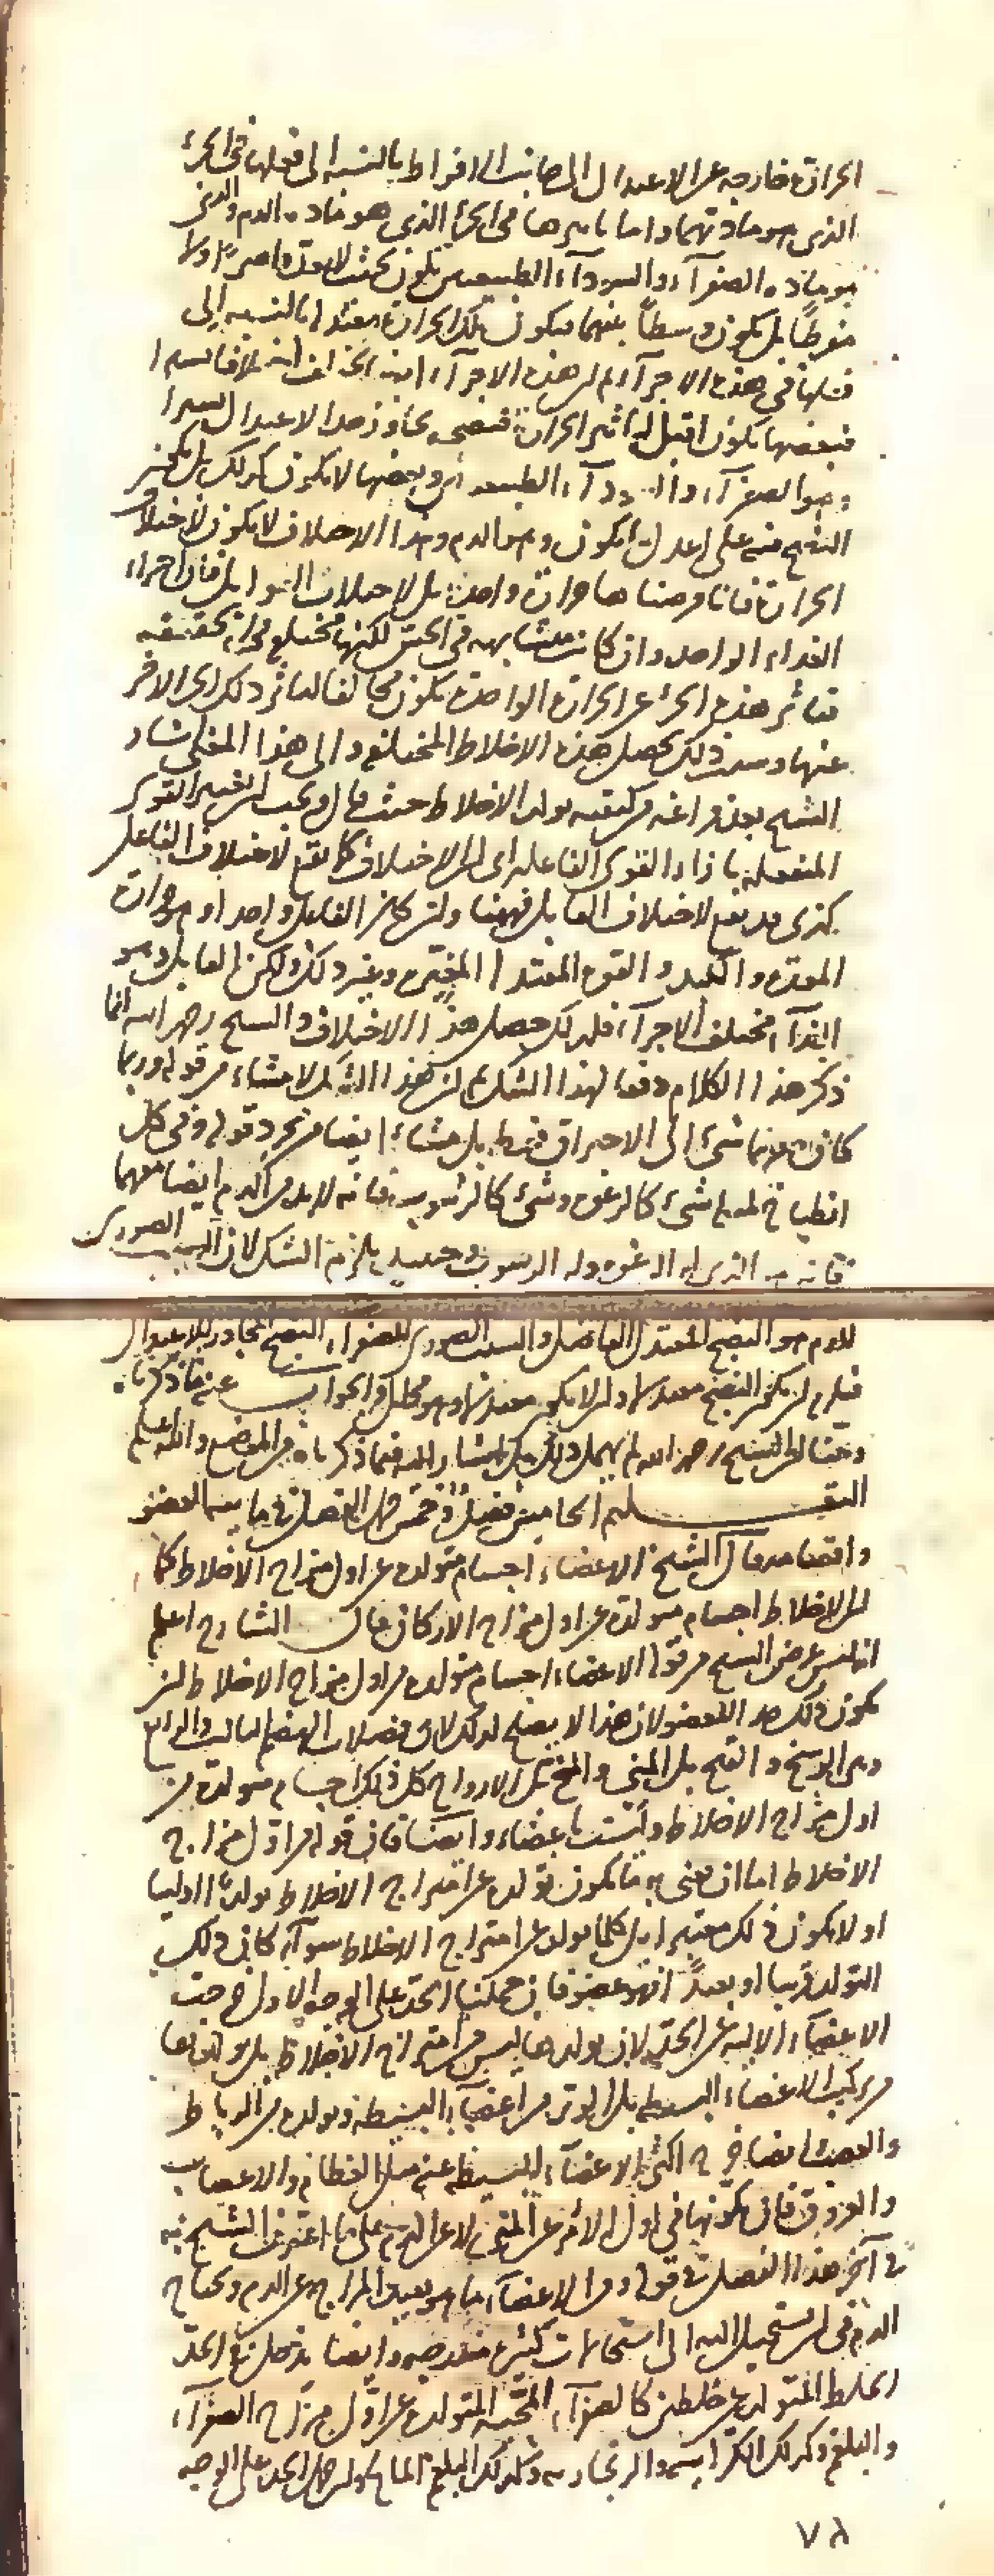 الحرارة خارجة عن الاعتدال الى جانب الافراط بالنسبة الى فعلها في الجزء
الذي هو مادتهما واما تاثيرها في الجزء الذي هو مادة الدم والذي
هو مادة الصفرآء والسودآء الطبيعيين تكون بحيث لا يعد قاصرا ولا
مفرطًا بل يكون وسطًا بينهما فيكون تلك الحرارة معتدلة بالنسبة الى
فعلها في هذه الاجزآء ثم ان هذه الاجزآء
فبعضها يكون اقبل لتاثير الحرارة فنضجه يجاوز حد الاعتدال يسيرا
وهو الصفرآء والسودآء الطبيعية وبعضها لا يكون كذلك بل يكون
النضج منه على اعدل ما يكون وهو الدم وهذا الاختلاف لا يكون لاختلاف
الحرارة فانا فرضناها حرارة واحدة بل لاختلاف القوابل فان اجزاء
الغذاء الواحد وان كانت متشابهة في الحس لكنها مختلفة في الحقيقة
فتاثر هذه الجزء عن الحرارة الواحدة يكون مخالفا لتاثر ذلك الجزء الاخر
عنها وبسبب ذلك يحصل هذه الاخلاط المختلفة والى هذا المعنى اشار
الشيخ بعد فراغه من كيفية تولد الاخلاط حيث قال ويجب ان تعتبر القوى
المنفعلة بازاء القوى الفاعلة اى ان الاختلاف كما يقع لاختلاف الفاعل
كذى قد يقع لاختلاف القابل فههنا وان كان الفاعل واحدا وهو حرارة
المعدة والكبد والقوة المغيرة وغير ذلك ولكن القابل وهو
الغذآء مختلف الاجزآء فلذلك حصل هذا الاختلاف والشيخ رحمه الله انما
ذكر هذا الكلام دفعا لهذا الشك ثم ان هذا الشك لا منشاء من قوله وربما
كان معهما شئ الى الاحتراق فقط بل منشاءه ايضا من مجرد قوله وفي كل
انطباخ لمثله شئ كالرغوة وشئ كالرسوب فانه لابد من الدم ايضا معهما
فانه هو الذي له الرغوة وله الرسوب وحينئذ يلزم الشك لان السبب الصورى
للدم هو النضج المعتدل الفاضل والسبب الصورى للصفراء النضج المجاوز للاعتدال
فيلزم ان يكون النضج معتدلا وان لا يكون معتدلا وهو محال والجواب عنه ما ذكرناه
وعندنا ان الشيخ رحمه الله لم يهمل ذلك بل اشار اليه فيما ذكرناه من الموضع والله اعلم
التعـــــليم الخامس فصل وخمس جمل الفصل في ماهية العضو
واقسامه قال الشيخ الاعضاء اجسام متولدة عن اول مزاج الاخلاط كما
ان الاخلاط اجسام متولدة عن اول مزاج الاركان قال الشارح اعلم
انه ليس غرض الشيخ من قوله الاعضاء اجسام متولدة من اول مزاج الاخلاط ان
يكون ذلك حد العضو لان هذا لا يصلح لذلك لان فضلات الهضم الثالث والرابع
وهي الوسخ والقيح بل المني والمخ بل الارواح كل ذلك اجسام متولدة من
اول مزاج الاخلاط وليست باعضاء وايضا فان قوله من اول مزاج
الاخلاط اما ان يعني به ما يكون تولده عن امتزاج الاخلاط تولدا اوليا
او لا يكون ذلك معتبرا بل كلما تولد عن امتزاج الاخلاط سوآء كان ذلك
التولد قريبا او بعيدًا انه عضو فان حملنا الحد على الوجه الاول خرجت
الاعضآء الالية عن الحد لان تولدها ليس من امتزاج الاخلاط بل تولدها
من تركيب الاعضاء البسيطة بل الوتر من الاعضآء البسيطة وتولده من الرباط
والعصب ايضا خرج اكثر الاعضآء البسيطة عنه مثل العظام والاعصاب
والعروق فان تكونها في اول الامر عن المني لا عن الدم على ما اعترف الشيخ به
في آخر هذا الفصل في قوله ومن الاعضآء ما هو بعيد المزاج عن الدم ويحتاج
الدم في ان يستحيل اليه الى استحالات كثيرة متدرجة وايضا يدخل في الحد
الخلط المتولد عن خلطين كالصفرآء المحية المتولدة عن اول مزاج الصفرآء
والبلغم وكذلك الكراثية والزنجارية وكذلك البلغم المالح وان حمل الحد على الوجه
٧٨